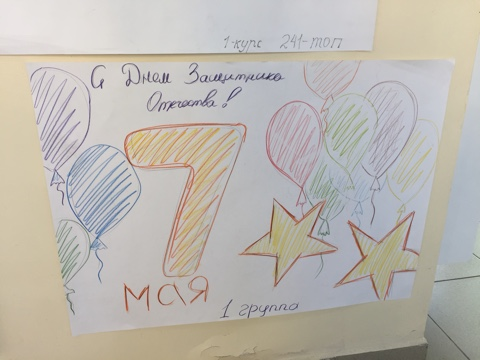 1-курс 241-топ
С Днем Защитника
Отечества!
7
мая
1 группа